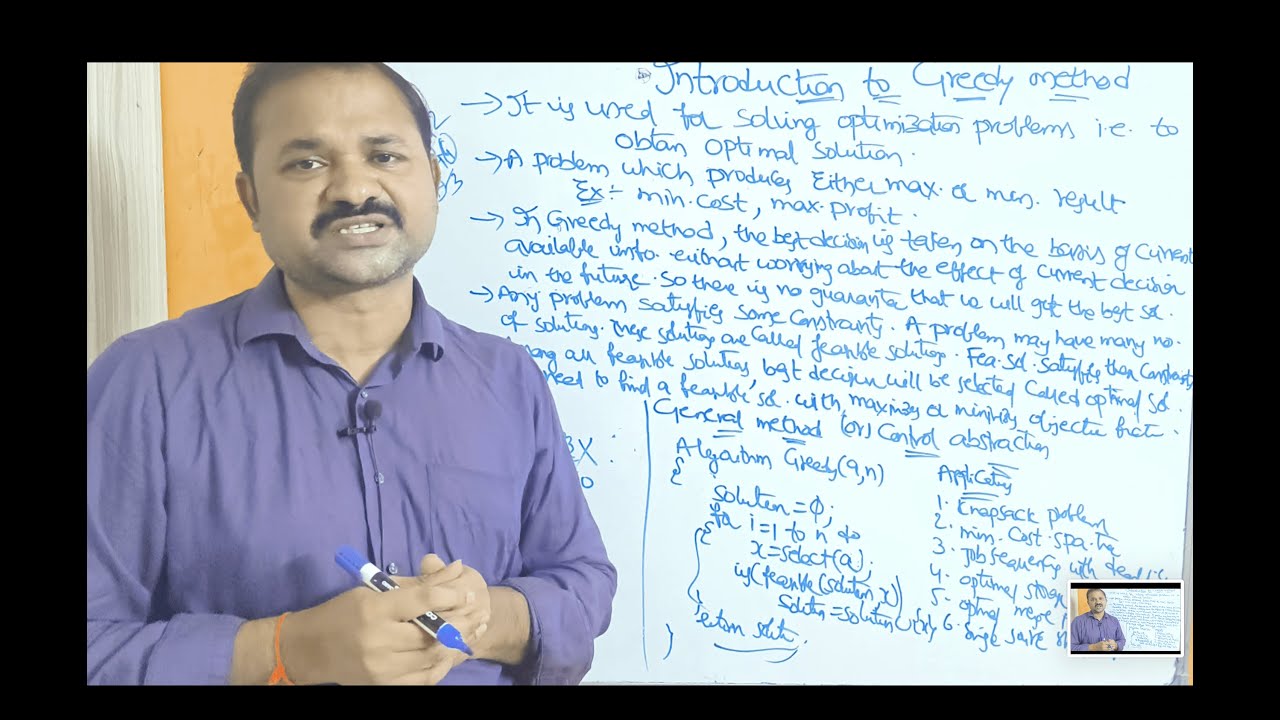 Introduction to Greedy method
→ It is used for solving optimization problems i.e. to
obtain optimal solution.
→ A problem which produces Either max. or min. result
Ex:- min. cost, max. profit.
→ In Greedy method, the best decision is taken on the basis of current
available info. without worrying about the effect of current decision
in the future. So there is no guarantee that we will get the best sol.
→ Any problem satisfies some constraints. A problem may have many no.
of solutions. These solutions are called feasible solutions. Fea. sol. satisfies the constraints
all feasible solutions, best decision will be selected called optimal sol.
need to find a feasible sol. with maximizing or minimizing objective function.
General method (or) Control abstraction
Algorithm Greedy(a,n)
{
solution = ϕ;
for i=1 to n do
{
x=select(a);
if(feasible(solution, x))
solution = solution ∪ {x};
}
return solution
}
Applications
1. Knapsack problem
2. min. cost. spa. tree
3. Job sequencing with
4. optimal storage
5. optimal merge
6. single source